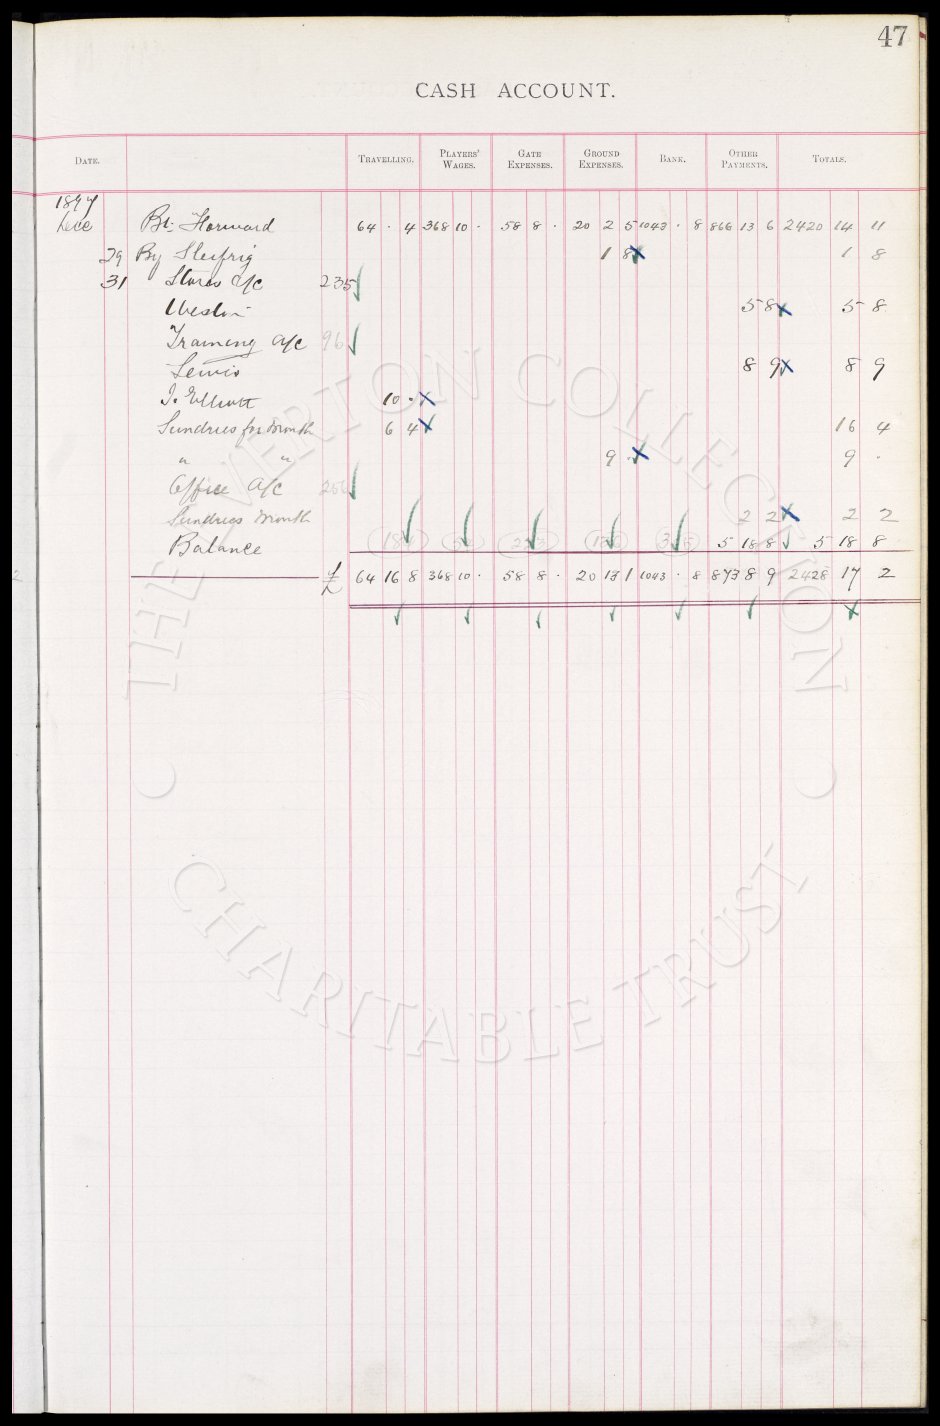 47
CASH ACCOUNT.
DATE. TRAVELLING. PLAYERS' WAGES. GATE EXPENSES. GROUND EXPENSES. BANK. OTHER PAYMENTS. TOTALS.
1897
Dece Bt. Forward 64 · 4 368 10 · 58 8 · 20 2 5 1043 · 8 866 13 6 2420 14 11
29 By 1 8 1 8
31 Stores a/c 235
5 8 5 8
Training a/c 96
Lewis 8 9 8 9
J. Elliott 10 ·
Sundries for Month 6 4 16 4
" " 9 · 9 ·
Office a/c 256
Sundries Month 2 2 2 2
Balance 5 18 8 5 18 8
£ 64 16 8 368 10 · 58 8 · 20 13 1 1043 · 8 873 8 9 2428 17 2
THE EVERTON COLLECTION
CHARITABLE TRUST